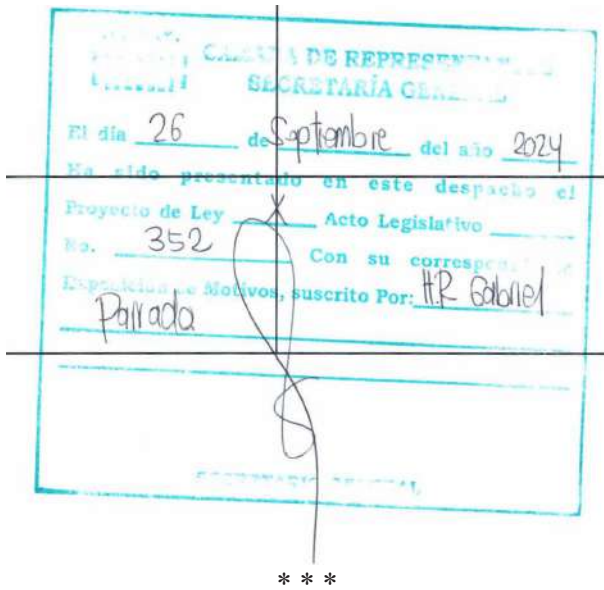 CÁMARA DE REPRESENTANTES
SECRETARÍA GENERAL
El día 26 de Septiembre del año 2024
Ha sido presentado en este despacho el
Proyecto de Ley Acto Legislativo
No. 352 Con su correspondiente
Exposición de Motivos, suscrito Por: H.R Gabriel
Parrada
SECRETARIO GENERAL
* * *